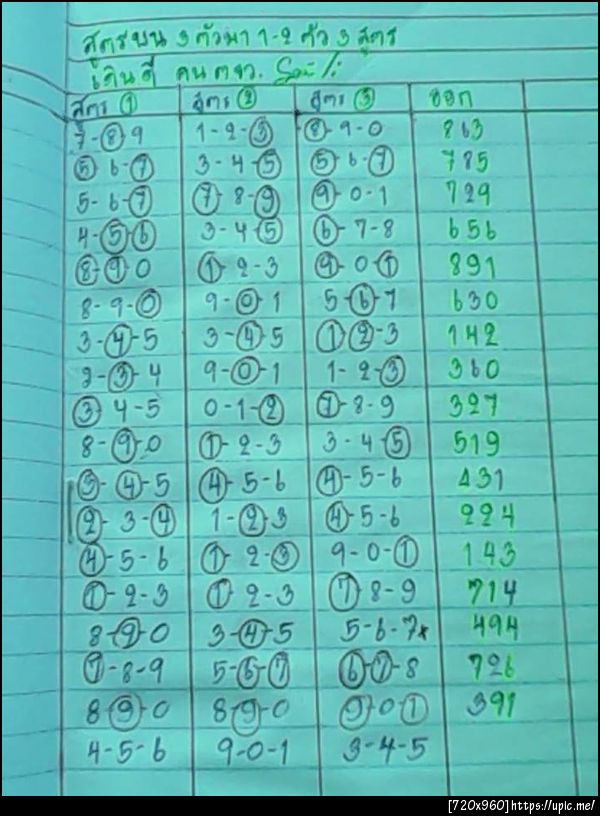 สูตรบน 3 ตัวมา 1-2 ตัว 3 สูตร
เดินดี คน ตจว.
สูตร ① สูตร ② สูตร ③ ออก
7-8-9 1-2-3 8-9-0 863
5-6-7 3-4-5 5-6-7 785
5-6-7 7-8-9 9-0-1 729
4-5-6 3-4-5 6-7-8 656
8-9-0 1-2-3 9-0-1 891
8-9-0 9-0-1 5-6-7 630
3-4-5 3-4-5 1-2-3 142
2-3-4 9-0-1 1-2-3 360
3-4-5 0-1-2 7-8-9 327
8-9-0 1-2-3 3-4-5 519
3-4-5 4-5-6 4-5-6 431
2-3-4 1-2-3 4-5-6 224
4-5-6 1-2-3 9-0-1 143
1-2-3 1-2-3 7-8-9 714
8-9-0 3-4-5 5-6-7x 494
7-8-9 5-6-7 6-7-8 726
8-9-0 8-9-0 9-0-1 391
4-5-6 9-0-1 3-4-5
[720x960]https://upic.me/